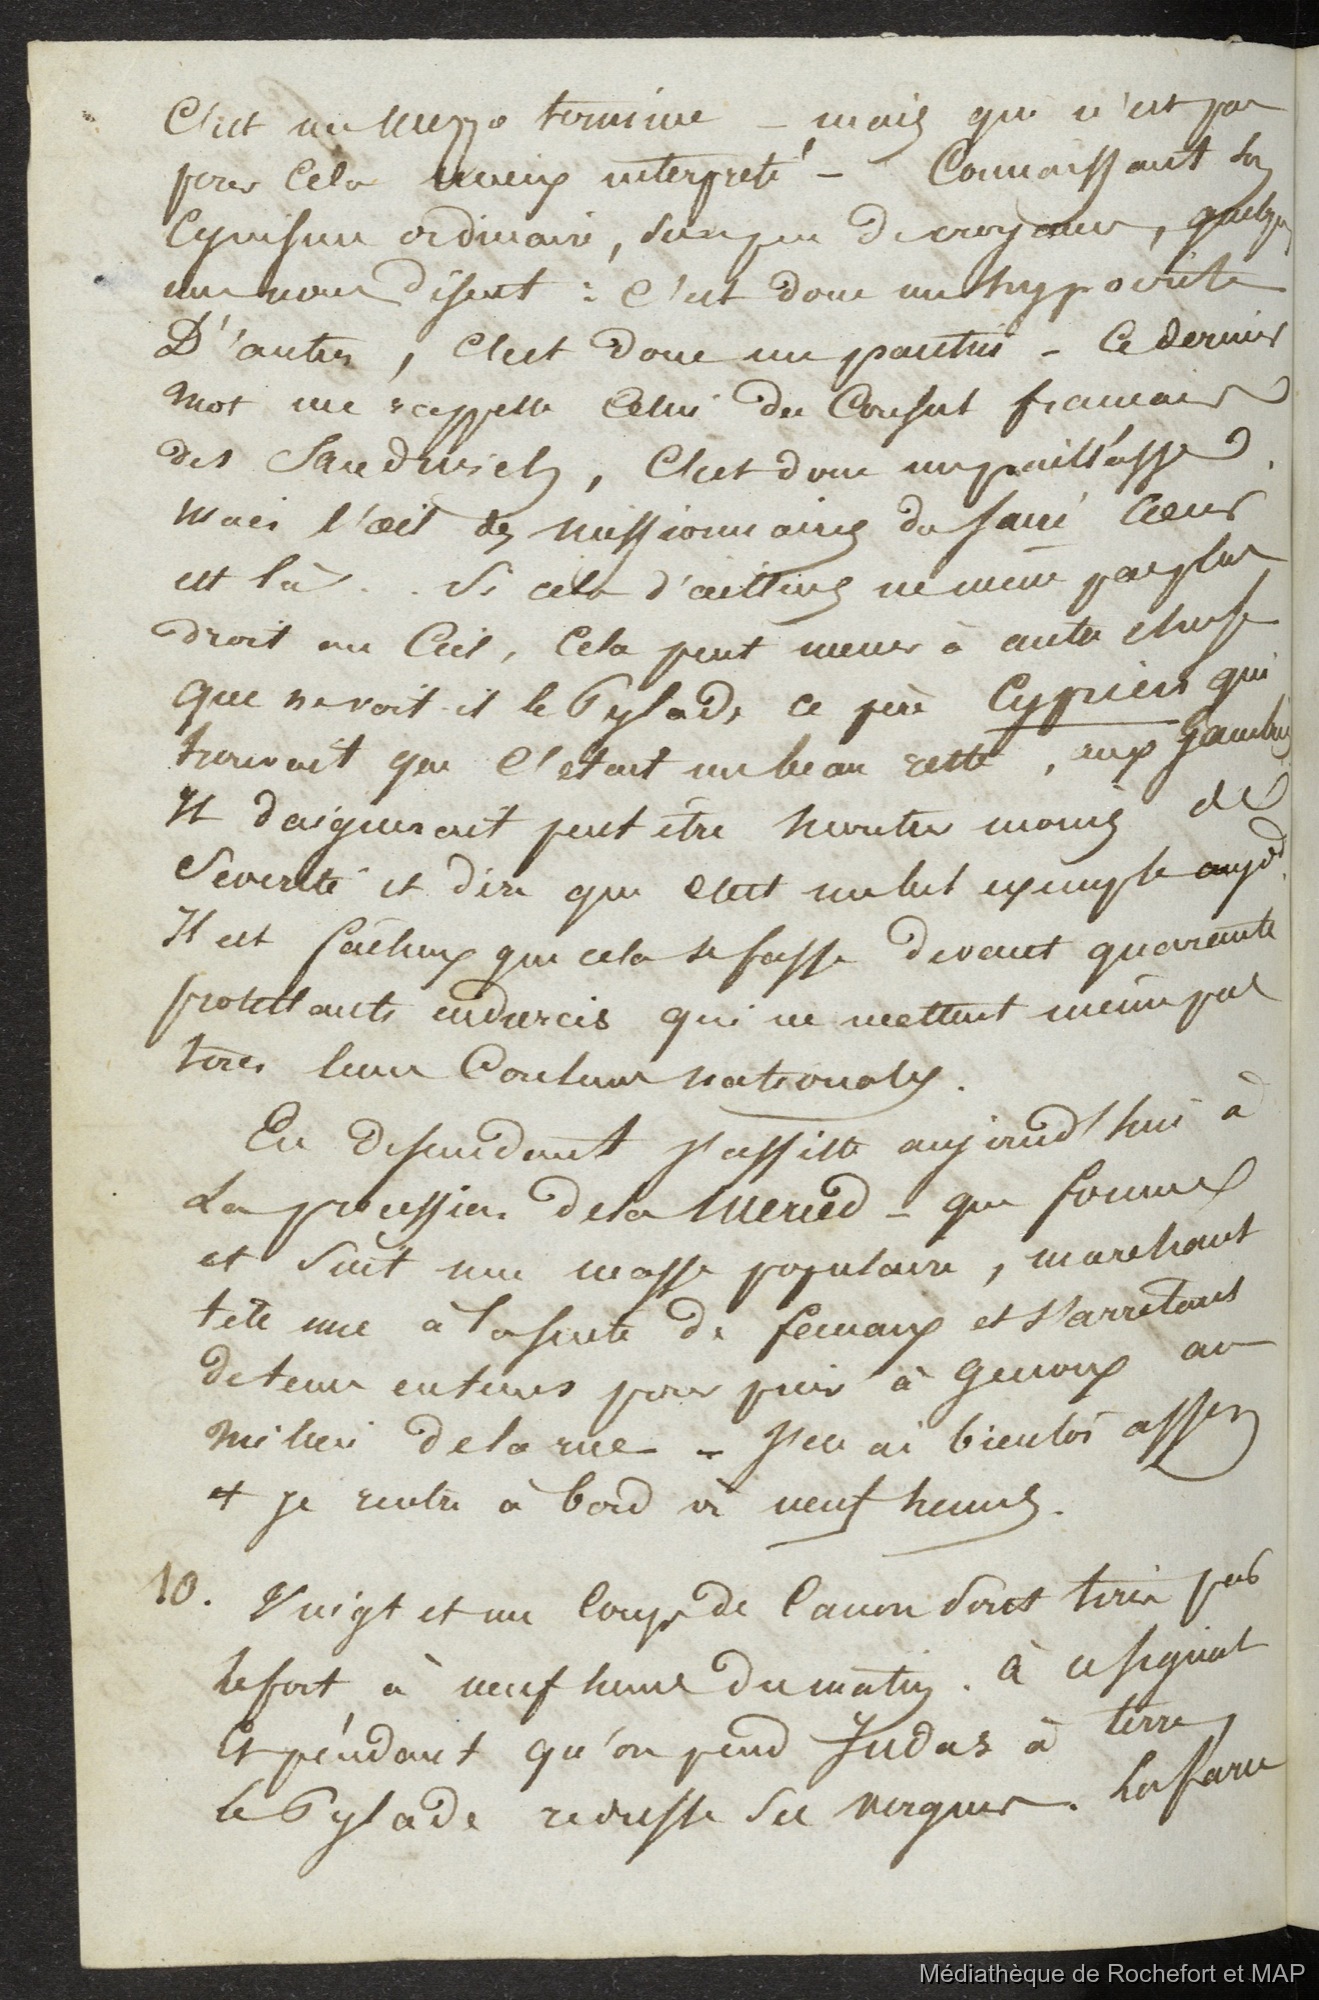 C'est un mezzo termine – mais qui n'est pas
pour cela mieux interpreté – Connaissant son
Cynisme ordinaire, son peu de croyance, quelques
uns nous disent : C'est donc un hypocrite
D'autres, C'est donc un pantin – Ce dernier
mot me rappelle Celui du Consul francais
des Sandwich, C'est donc un paillasse.
Mais l'œil des missionnaires du Sacré Cœur
est là . . Si cela d'ailleurs ne mène pas plus
droit au Ciel, Cela peut mener à autre chose
Que ne voit-il le Pylade, ce père Cyprien qui
trouvait que C'était un beau reste, aux Gambier
Il daignerait peut être monter moins de
Severité et dire que C'est un bel exemple aujd.
Il est facheux que cela se fasse devant quarante
protestants endurcis qui ne mettent même pas
leurs Couleurs nationales.
En descendant j'assiste aujourd'hui à
La procession de la Merced – que forme
et Suit une masse populaire, marchant
tête nue à la suite de fecaux et s'arrêtant
de tems en tems pour prier à Genoux au
milieu de la rue – J'en ai bientôt assez
et je rentre à bord à neuf heures.
10. Vingt et un Coups de Canon Sont tirés par
le fort à neuf heures du matin. à ce signal
Et pendant qu'on pend Judas à terre,
le Pylade redresse Ses vergues. La farce